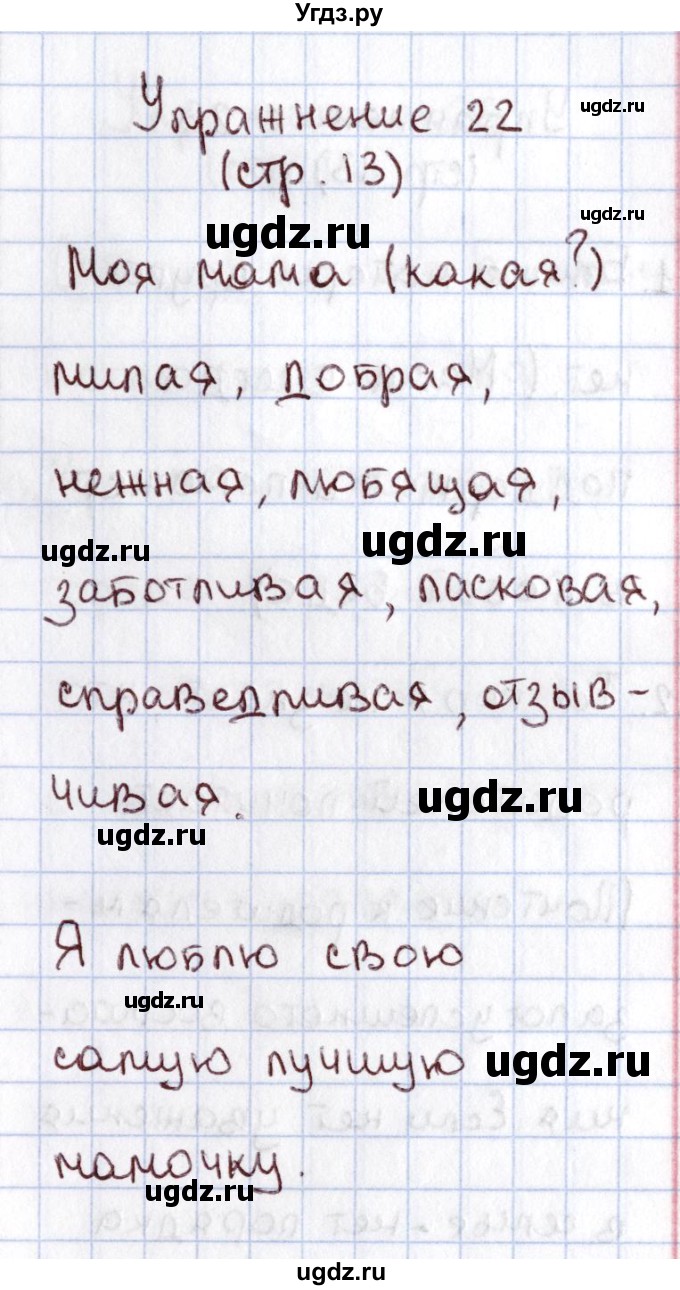 Угдз.ру
Упражнение 22
ugdz.ru
(стр. 13)
ugdz.ru
ugdz.ru
Моя мама (какая?)
милая, добрая,
нежная, любящая,
ugdz.ru
ugdz.ru
заботливая, ласковая,
справедливая, отзыв-
чивая.
ugdz.ru
ugdz.ru
Я люблю свою
ugdz.ru
самую лучшую
ugdz.ru
мамочку.
ugdz.ru
ugdz.ru